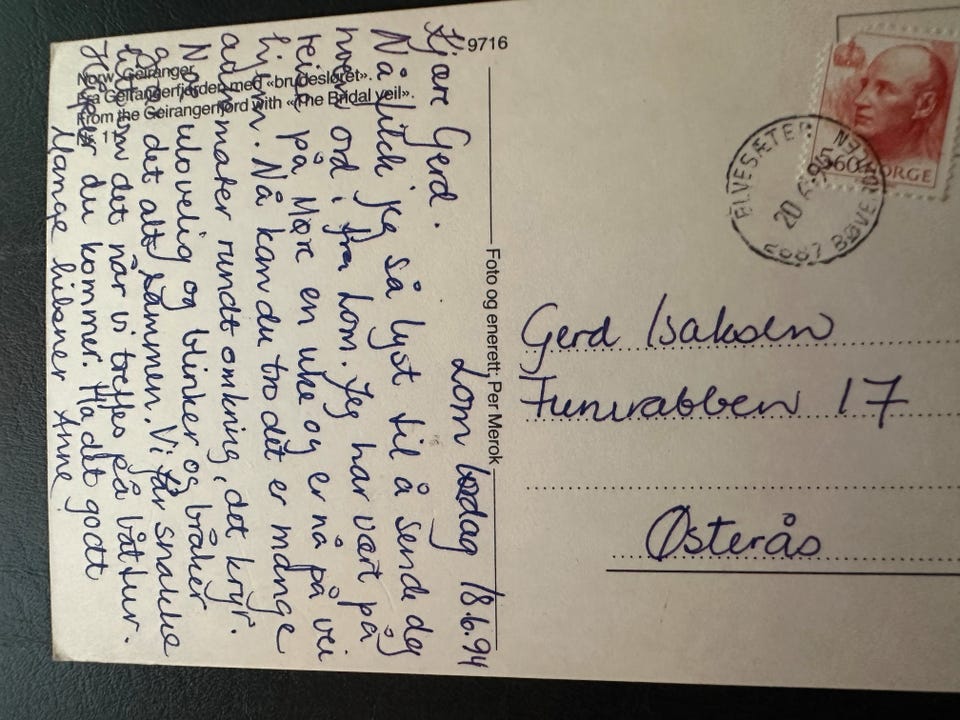 9716
Norw. Geiranger.
Fra Geirangerfjorden med «brudesløret».
From the Geirangerfjord with «The Bridal veil».
Foto og enerett: Per Merok
Lom lørdag 18.6.94
Kjære Gerd.
Nå fikk jeg så lyst til å sende deg
noen ord i fra Lom. Jeg har vært på
reise på Møre en uke og er nå på vei
hjem. Nå kan du tro det er mange
automater rundt omkring, det kryr.
og blinker og bråker
gjør det alt sammen. Vi får snakke
om det når vi treffes på båttur.
Håper du kommer. Ha det godt
Mange hilsner Anne
Gerd Isaksen
Fururabben 17
Østerås
ELVESÆTER
20
2687 BØVERDALEN
NORGE